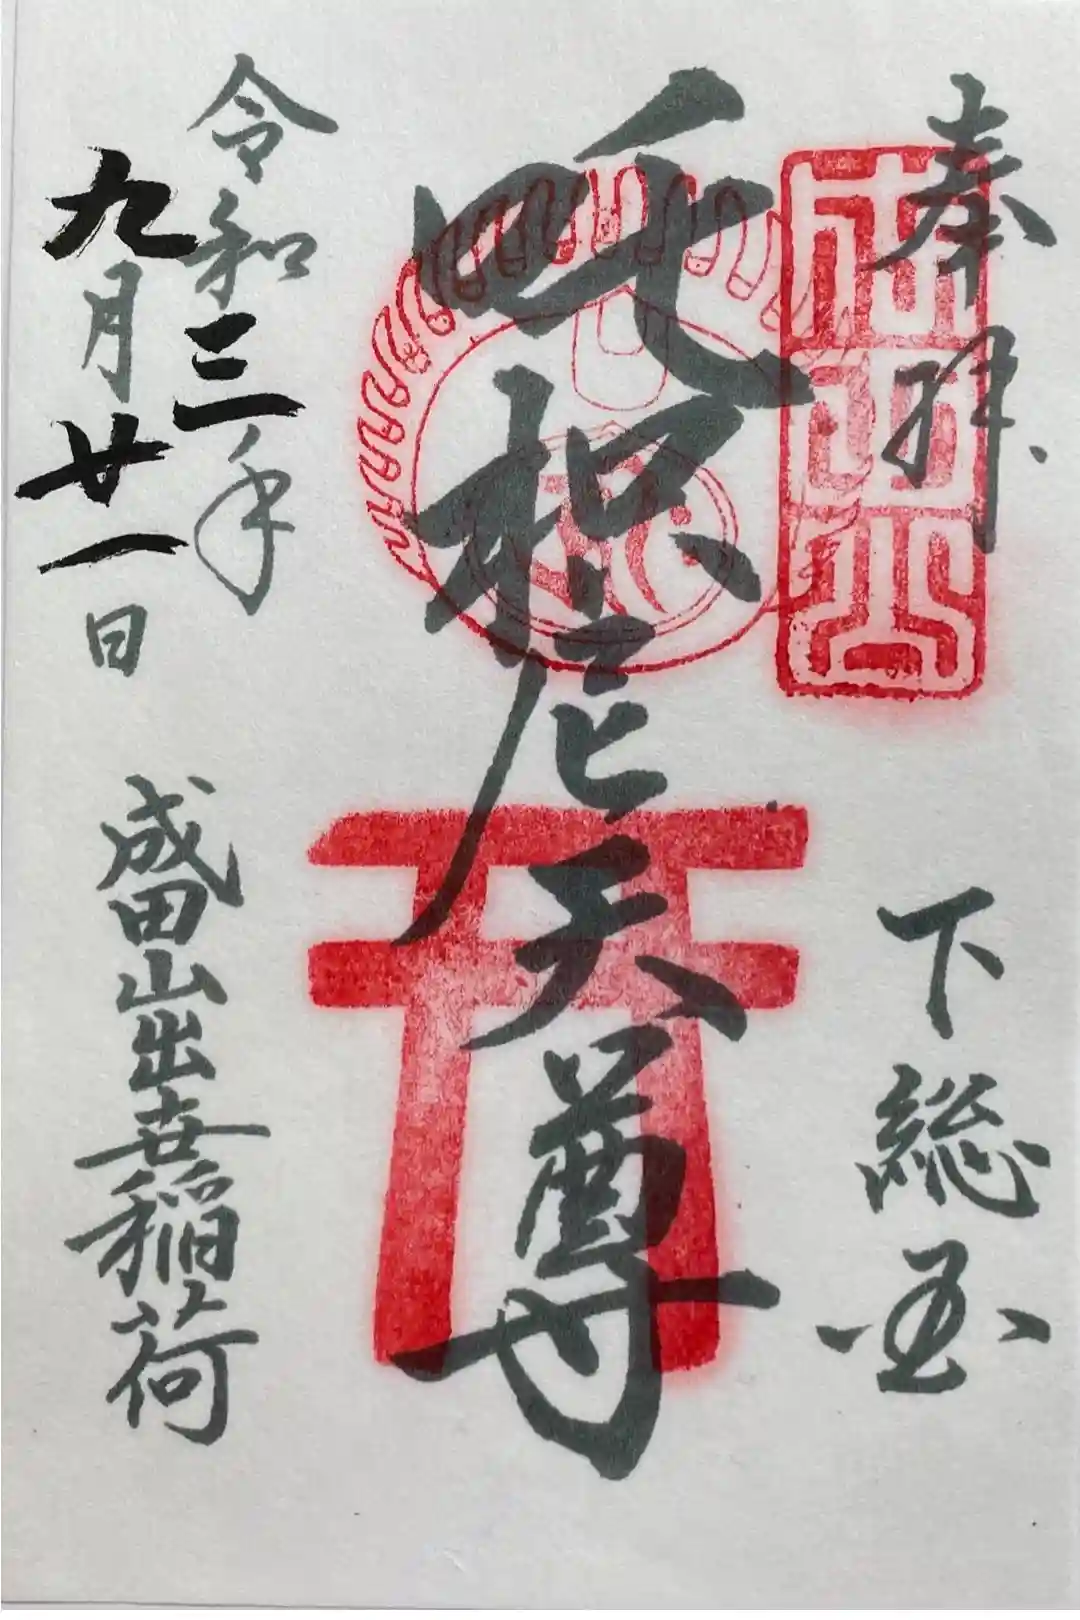 奉拝
下総国
成田山
吒枳尼天尊
令和三年
九月廿一日
成田山出世稲荷